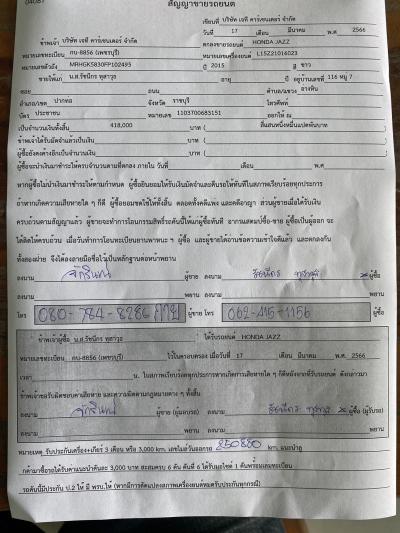 สัญญาขายรถยนต์
เขียนที่ บริษัท เจที คาร์เซนเตอร์ จำกัด
วันที่ 17 เดือน มีนาคม พ.ศ. 2566
ข้าพเจ้า บริษัท เจที คาร์เซนเตอร์ จำกัด ตกลงขายรถยนต์ HONDA JAZZ
หมายเลขทะเบียน กบ-8856 (เพชรบุรี) หมายเลขเครื่องยนต์ L15Z21014023
หมายเลขตัวถัง MRHGK5830FP102493 ปี 2015 สี ขาว
ขายให้แก่ น.ส.รัชนีกร อายุ ปี อยู่บ้านเลขที่ 116 หมู่ 7
ซอย ถนน ตำบล/แขวง
อำเภอ/เขต ปากท่อ จังหวัด ราชบุรี โทรศัพท์
บัตร ประชาชน หมายเลข 1103700683151 ออกให้ ณ
เป็นจำนวนเงินทั้งสิ้น 418,000 บาท ( สี่แสนหนึ่งหมื่นแปดพันบาท )
ข้าพเจ้าได้รับมัดจำแล้วเป็นเงิน บาท ( )
ผู้ซื้อยังคงค้างอีกเป็นจำนวนเงิน บาท ( )
ผู้ซื้อจะนำเงินมาชำระให้ครบจำนวนตามที่ตกลง ภายใน วันที่ เดือน พ.ศ.
หากผู้ซื้อไม่นำเงินมาชำระให้ตามกำหนด ผู้ซื้อยินยอมให้ริบเงินมัดจำและคืนรถให้ทันทีในสภาพเรียบร้อยทุกประการ
ถ้าหากเกิดความเสียหายใด ๆ ก็ดี ผู้ซื้อยอมชดใช้ให้ทั้งสิ้น ตลอดทั้งคดีแพ่ง และคดีอาญา ส่วนผู้ขายเมื่อได้รับเงิน
ครบถ้วนตามสัญญาแล้ว ผู้ขายจะทำการโอนกรรมสิทธิ์รถคันนี้ให้แก่ผู้ซื้อทันที ผู้ซื้อเป็นผู้ออก จะ
ได้คิดให้ครบถ้วน เมื่อวันทำการโอนทะเบียนยานพาหนะ ฯ ผู้ซื้อ และผู้ขายได้อ่านข้อความเข้าใจดีแล้ว และตกลงกัน
ทั้งสองฝ่าย จึงได้ลงลายมือชื่อไว้เป็นหลักฐานต่อหน้าพยาน
ลงนาม ผู้ขาย ลงนาม ผู้ซื้อ
ลงนาม พยาน ลงนาม พยาน
โทร 080-784-8286 ผู้ขาย โทร 062-415-1156 ผู้ซื้อ
ข้าพเจ้าผู้ซื้อ น.ส.รัชนีกร ได้รับรถยนต์ HONDA JAZZ
หมายเลขทะเบียน กบ-8856 (เพชรบุรี) ไว้ในครอบครอง เมื่อวันที่ 17 เดือน มีนาคม พ.ศ. 2566
เวลา น. ในสภาพเรียบร้อยทุกประการหากเกิดการเสียหายใด ๆ ก็ดีหลังจากที่รับรถยนต์ ดังกล่าวมา
ข้าพเจ้าขอรับผิดชอบค่าเสียหาย และความผิดตามกฎหมายต่าง ๆ ทั้งสิ้น
ลงนาม ผู้ขาย (ผู้มอบรถ) ลงนาม ผู้ซื้อ (ผู้รับรถ)
ลงนาม พยาน ลงนาม พยาน
หมายเหตุ รับประกันเครื่อง+เกียร์ 3 เดือน หรือ 3,000 km. เลขไมล์วันออกรถ 250880 km. แนะนำลูก
ค้ามาซื้อรถได้รับค่าแนะนำคันละ 3,000 บาท สะสมครบ 6 คัน คันที่ 6 ได้รับมอไซค์ 1 คันพร้อมเล่มทะเบียน
รถคันนี้มีประกัน ป.2 ให้ มี พรบ.ให้ (หากมีการดัดแปลงสภาพเครื่องยนต์หมดรับประกันทุกกรณี)